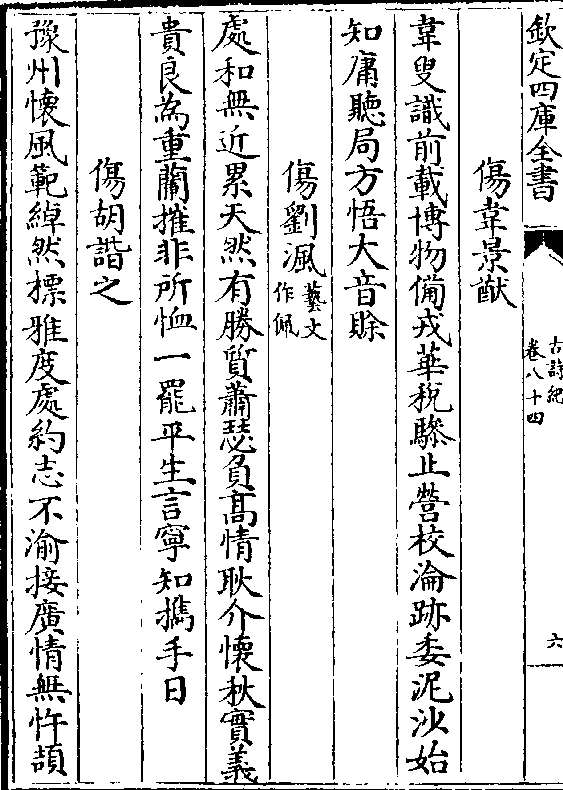 欽定四庫全書
古詩紀
卷八十四
六
傷韋景猷
韋叟識前載博物備戎華稅驂止營校淪跡委泥沙始
知庸聽局方悟大音賖
傷劉渢藝文
作佩
處和無近累天然有勝質蕭瑟負髙情耿介懷秋實義
貴良為重蘭摧非所恤一罷平生言寧知攜手日
傷胡諧之
豫州懷風範綽然標雅度處約志不渝接廣情無忤頡